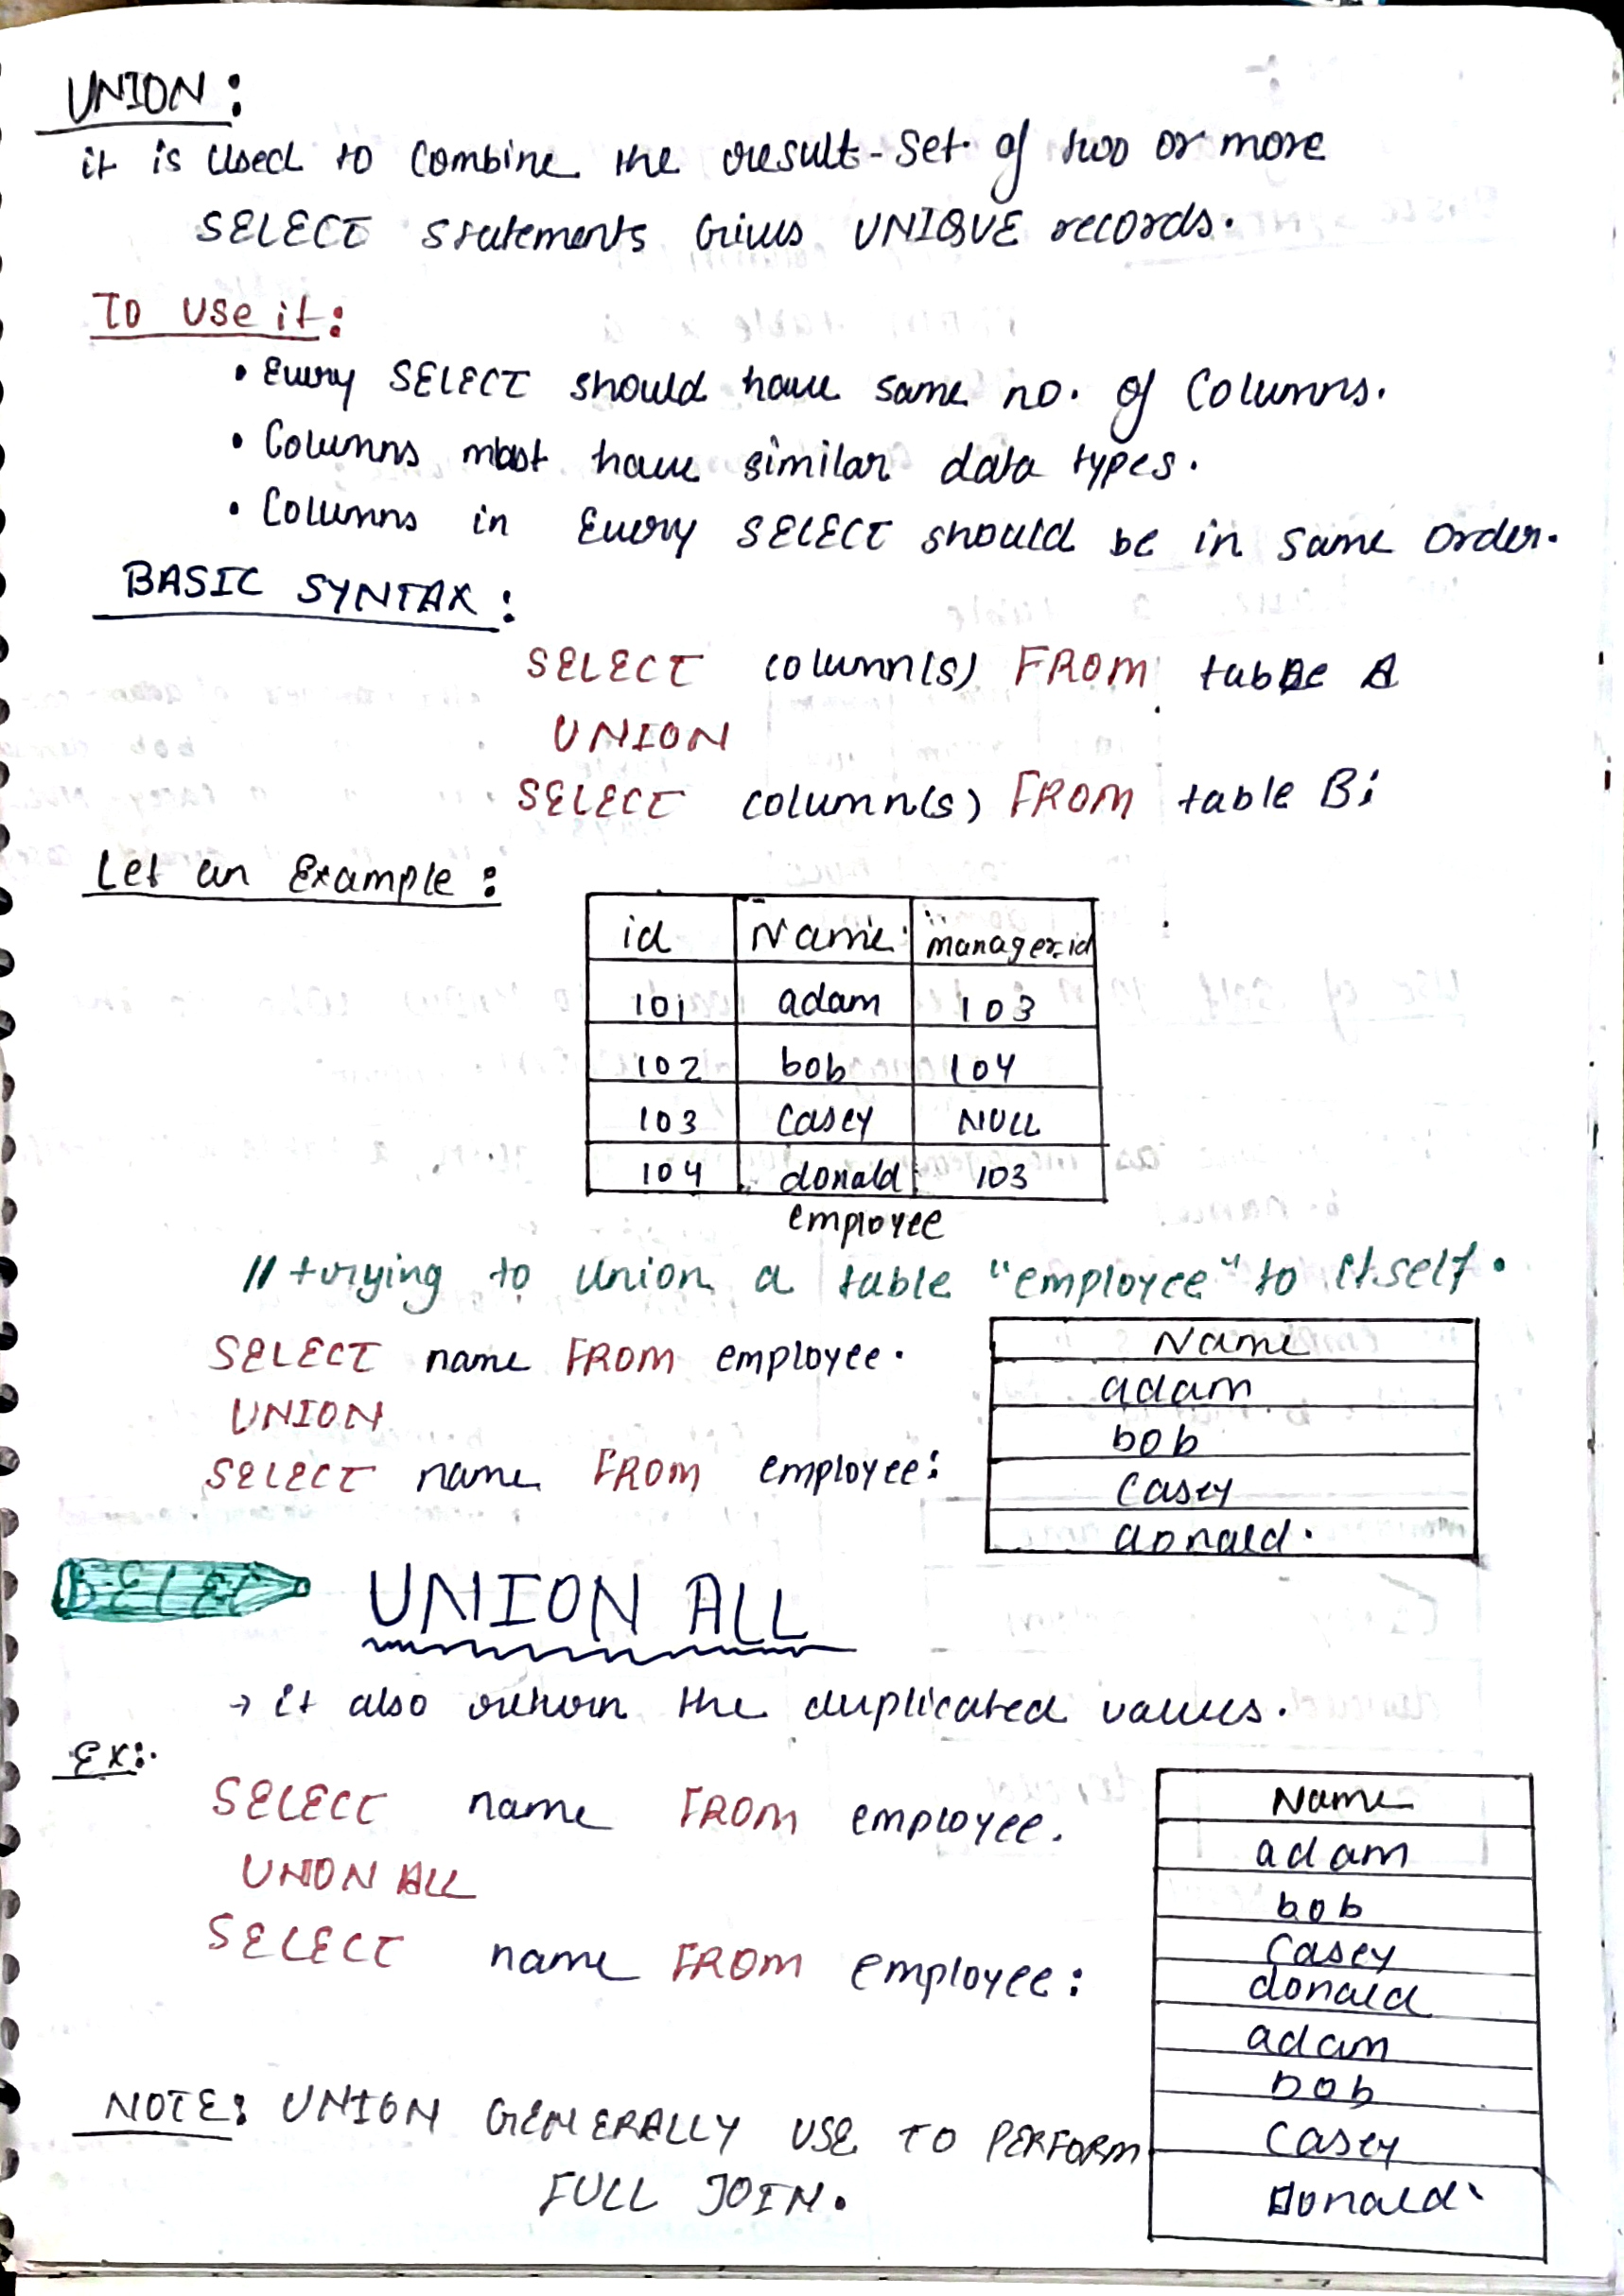 UNION:
it is used to combine the result-set of two or more
SELECT statements Gives UNIQUE records.
To use it:
• Every SELECT should have same no. of Columns.
• Columns must have similar data types.
• Columns in Every SELECT should be in same order.
BASIC SYNTAX:
SELECT column(s) FROM table A
UNION
SELECT column(s) FROM table B;
Let an Example:
id Name manager_id
101 adam 103
102 bob 104
103 Casey NULL
104 donald 103
employee
// trying to union a table "employee" to itself.
SELECT name FROM employee.
UNION
SELECT name FROM employee:
Name
adam
bob
Casey
donald.
UNION ALL
→ it also return the duplicated values.
Ex:.
SELECT name FROM employee.
UNION ALL
SELECT name FROM employee:
Name
adam
bob
Casey
donald
adam
bob
Casey
donald
NOTE: UNION GENERALLY USE TO PERFORM
FULL JOIN.